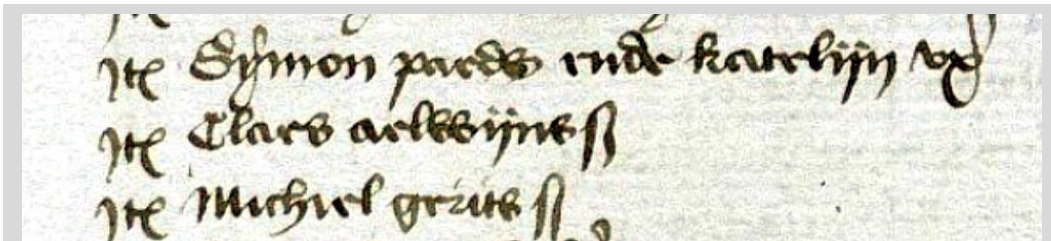 Itē Sÿmon paeds ende katelijn vxʳ
Itē Claes aelwijns ẞ
Itē Michiel gerits ẞ